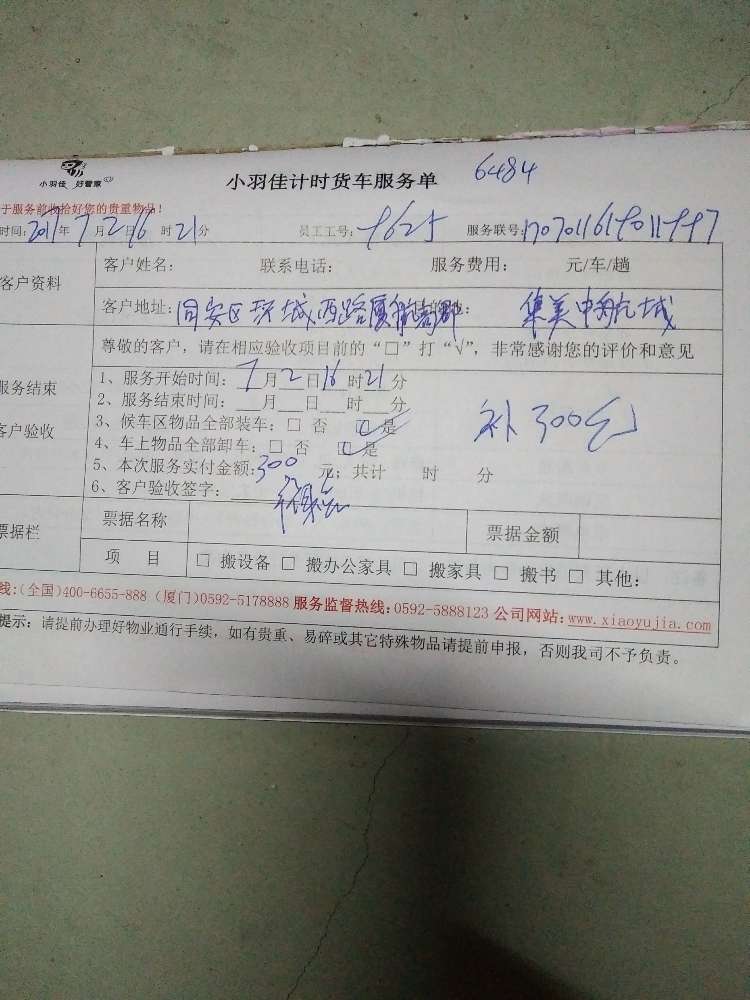 小羽佳 好管家
小羽佳计时货车服务单 6484
于服务前收拾好您的贵重物品!
时间:2017年7月2日16时21分 员工工号: 服务联号:
客户资料
客户姓名: 联系电话: 服务费用: 元/车/趟
客户地址:同安区环城西路厦航高郡 集美中航城
尊敬的客户,请在相应验收项目前的“□”打“√”,非常感谢您的评价和意见
服务结束
客户验收
1、服务开始时间:7月2日16时21分
2、服务结束时间:___月___日___时___分
3、候车区物品全部装车:□ 否 ☑ 是
补300元
4、车上物品全部卸车:□ 否 ☑ 是
5、本次服务实付金额:300元;共计 时 分
6、客户验收签字:
票据栏
票据名称 票据金额
项 目 □ 搬设备 □ 搬办公家具 □ 搬家具 □ 搬书 □ 其他:
线:(全国)400-6655-888 (厦门)0592-5178888 服务监督热线:0592-5888123 公司网站:www.xiaoyujia.com
提示:请提前办理好物业通行手续,如有贵重、易碎或其它特殊物品请提前申报,否则我司不予负责。